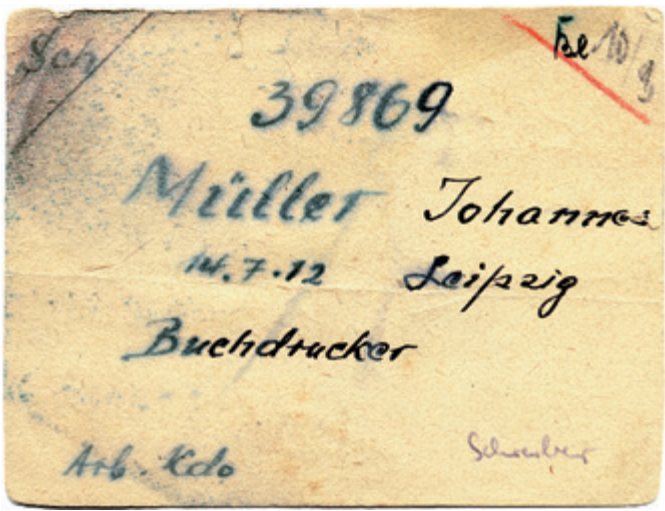 Sch Bl 10/9
39869
Müller Johannes
14.7.12 Leipzig
Buchdrucker
Arb. Kdo Schreiber